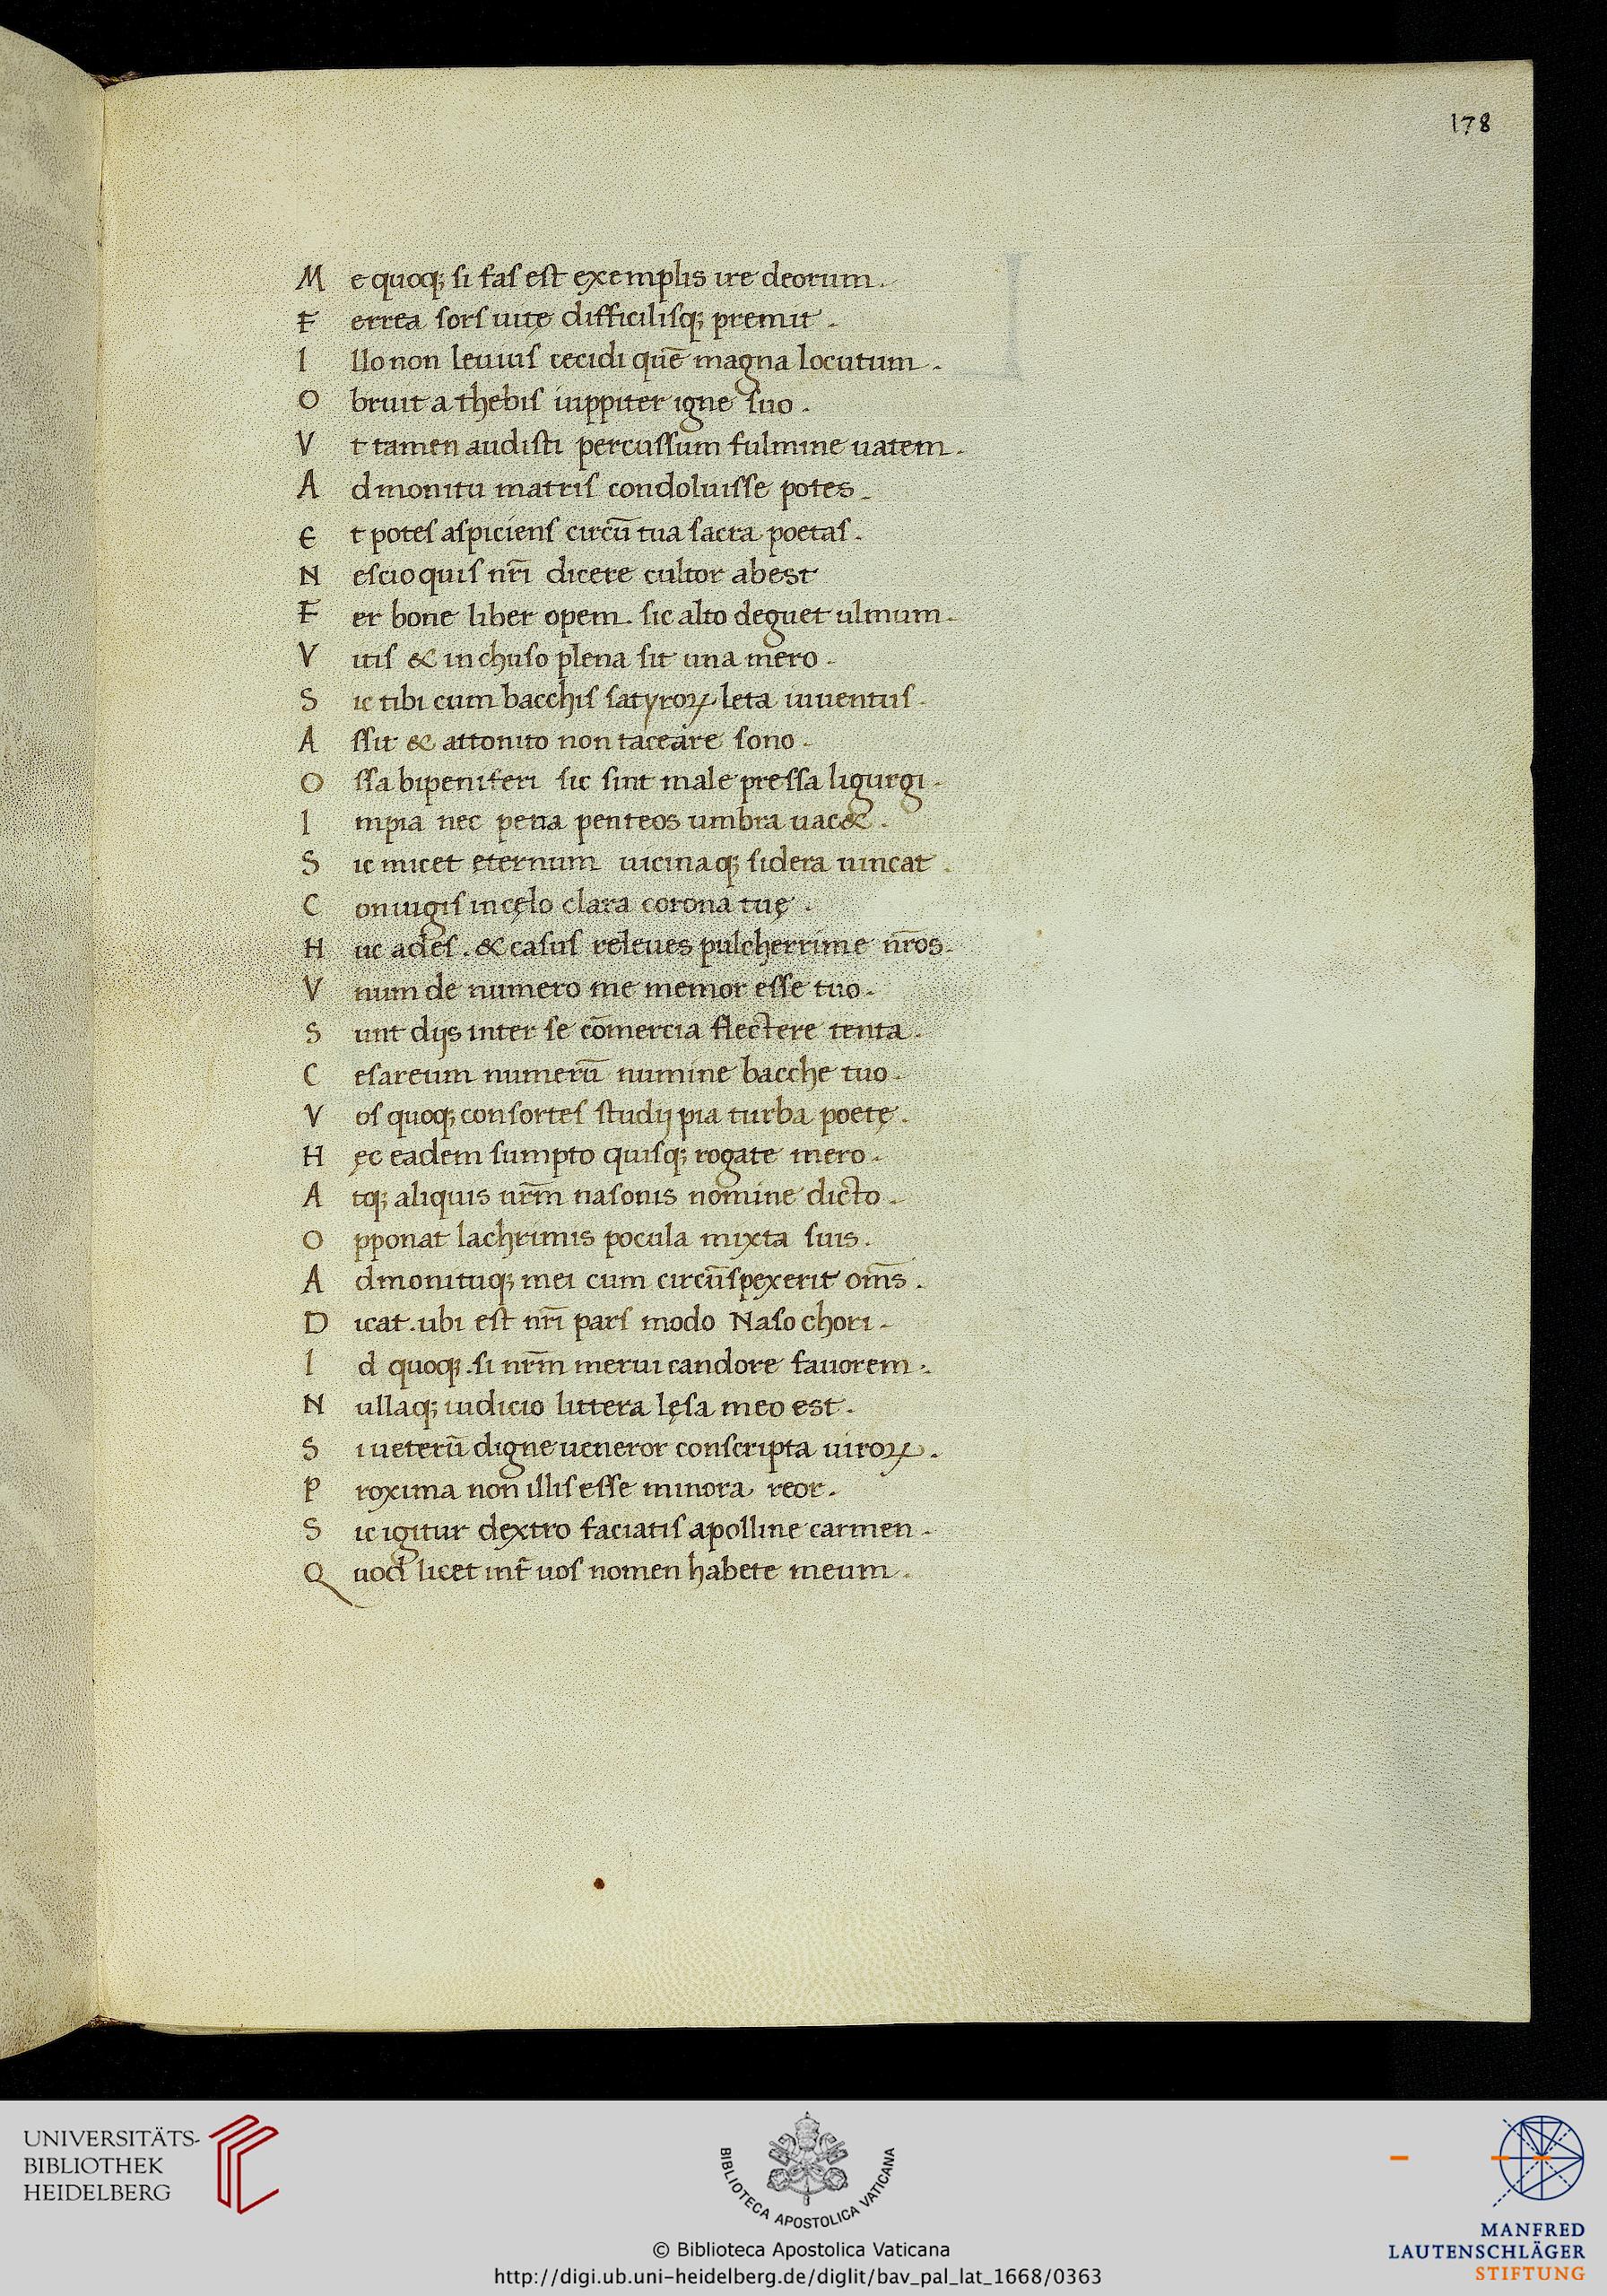 178
M e quoq; si fas est exemplis ire deorum.
F errea sors uitę difficilisq; premit.
I llo non leuius cecidi quē magna locutum.
O bruit a thebis iuppiter igne suo.
V t tamen audisti percussum fulmine uatem.
A dmonitu matris condoluisse potes.
E t potes aspiciens circū tua sacra poetas.
N escio quis nr̄i dicere cultor abest
F er bone liber opem. sic alto deguet ulmum.
V itis & inchuso plena sit una mero.
S ic tibi cum bacchis satyroꝝ leta iuuentus.
A ssit & attonito non taceare sono.
O ssa bipeniferi sic sint male pressa ligurgi.
I mpia nec pena penteos umbra uac&.
S ic micet ęternum uicinaq; sidera uincat.
C oniugis in cęlo clara corona tuę.
H uc ades. & casus releues pulcherrime nr̄os.
V num de numero me memor esse tuo.
S unt dijs inter se cōmercia flectere tenta.
C esareum numerū numine bacche tuo.
V os quoq; consortes studij pia turba poetę.
H ęc eadem sumpto quisq; rogate mero.
A tq; aliquis nr̄m nasonis nomine dicto.
O pponat lachrimis pocula mixta suis.
A dmonituq; mei cum circūspexerit om̄s.
D icat. ubi est nr̄i pars modo Naso chori.
I d quoq; si nr̄m merui candore fauorem.
N ullaq; iudicio littera lęsa meo est.
S i ueterū digne ueneror conscripta uiroꝝ.
P roxima non illis esse minora reor.
S ic igitur dextro faciatis apolline carmen.
Q uod licet int̄ uos nomen habete meum.
UNIVERSITÄTS-
BIBLIOTHEK
HEIDELBERG
BIBLIOTECA APOSTOLICA VATICANA
© Biblioteca Apostolica Vaticana
http://digi.ub.uni-heidelberg.de/diglit/bav_pal_lat_1668/0363
MANFRED
LAUTENSCHLÄGER
STIFTUNG